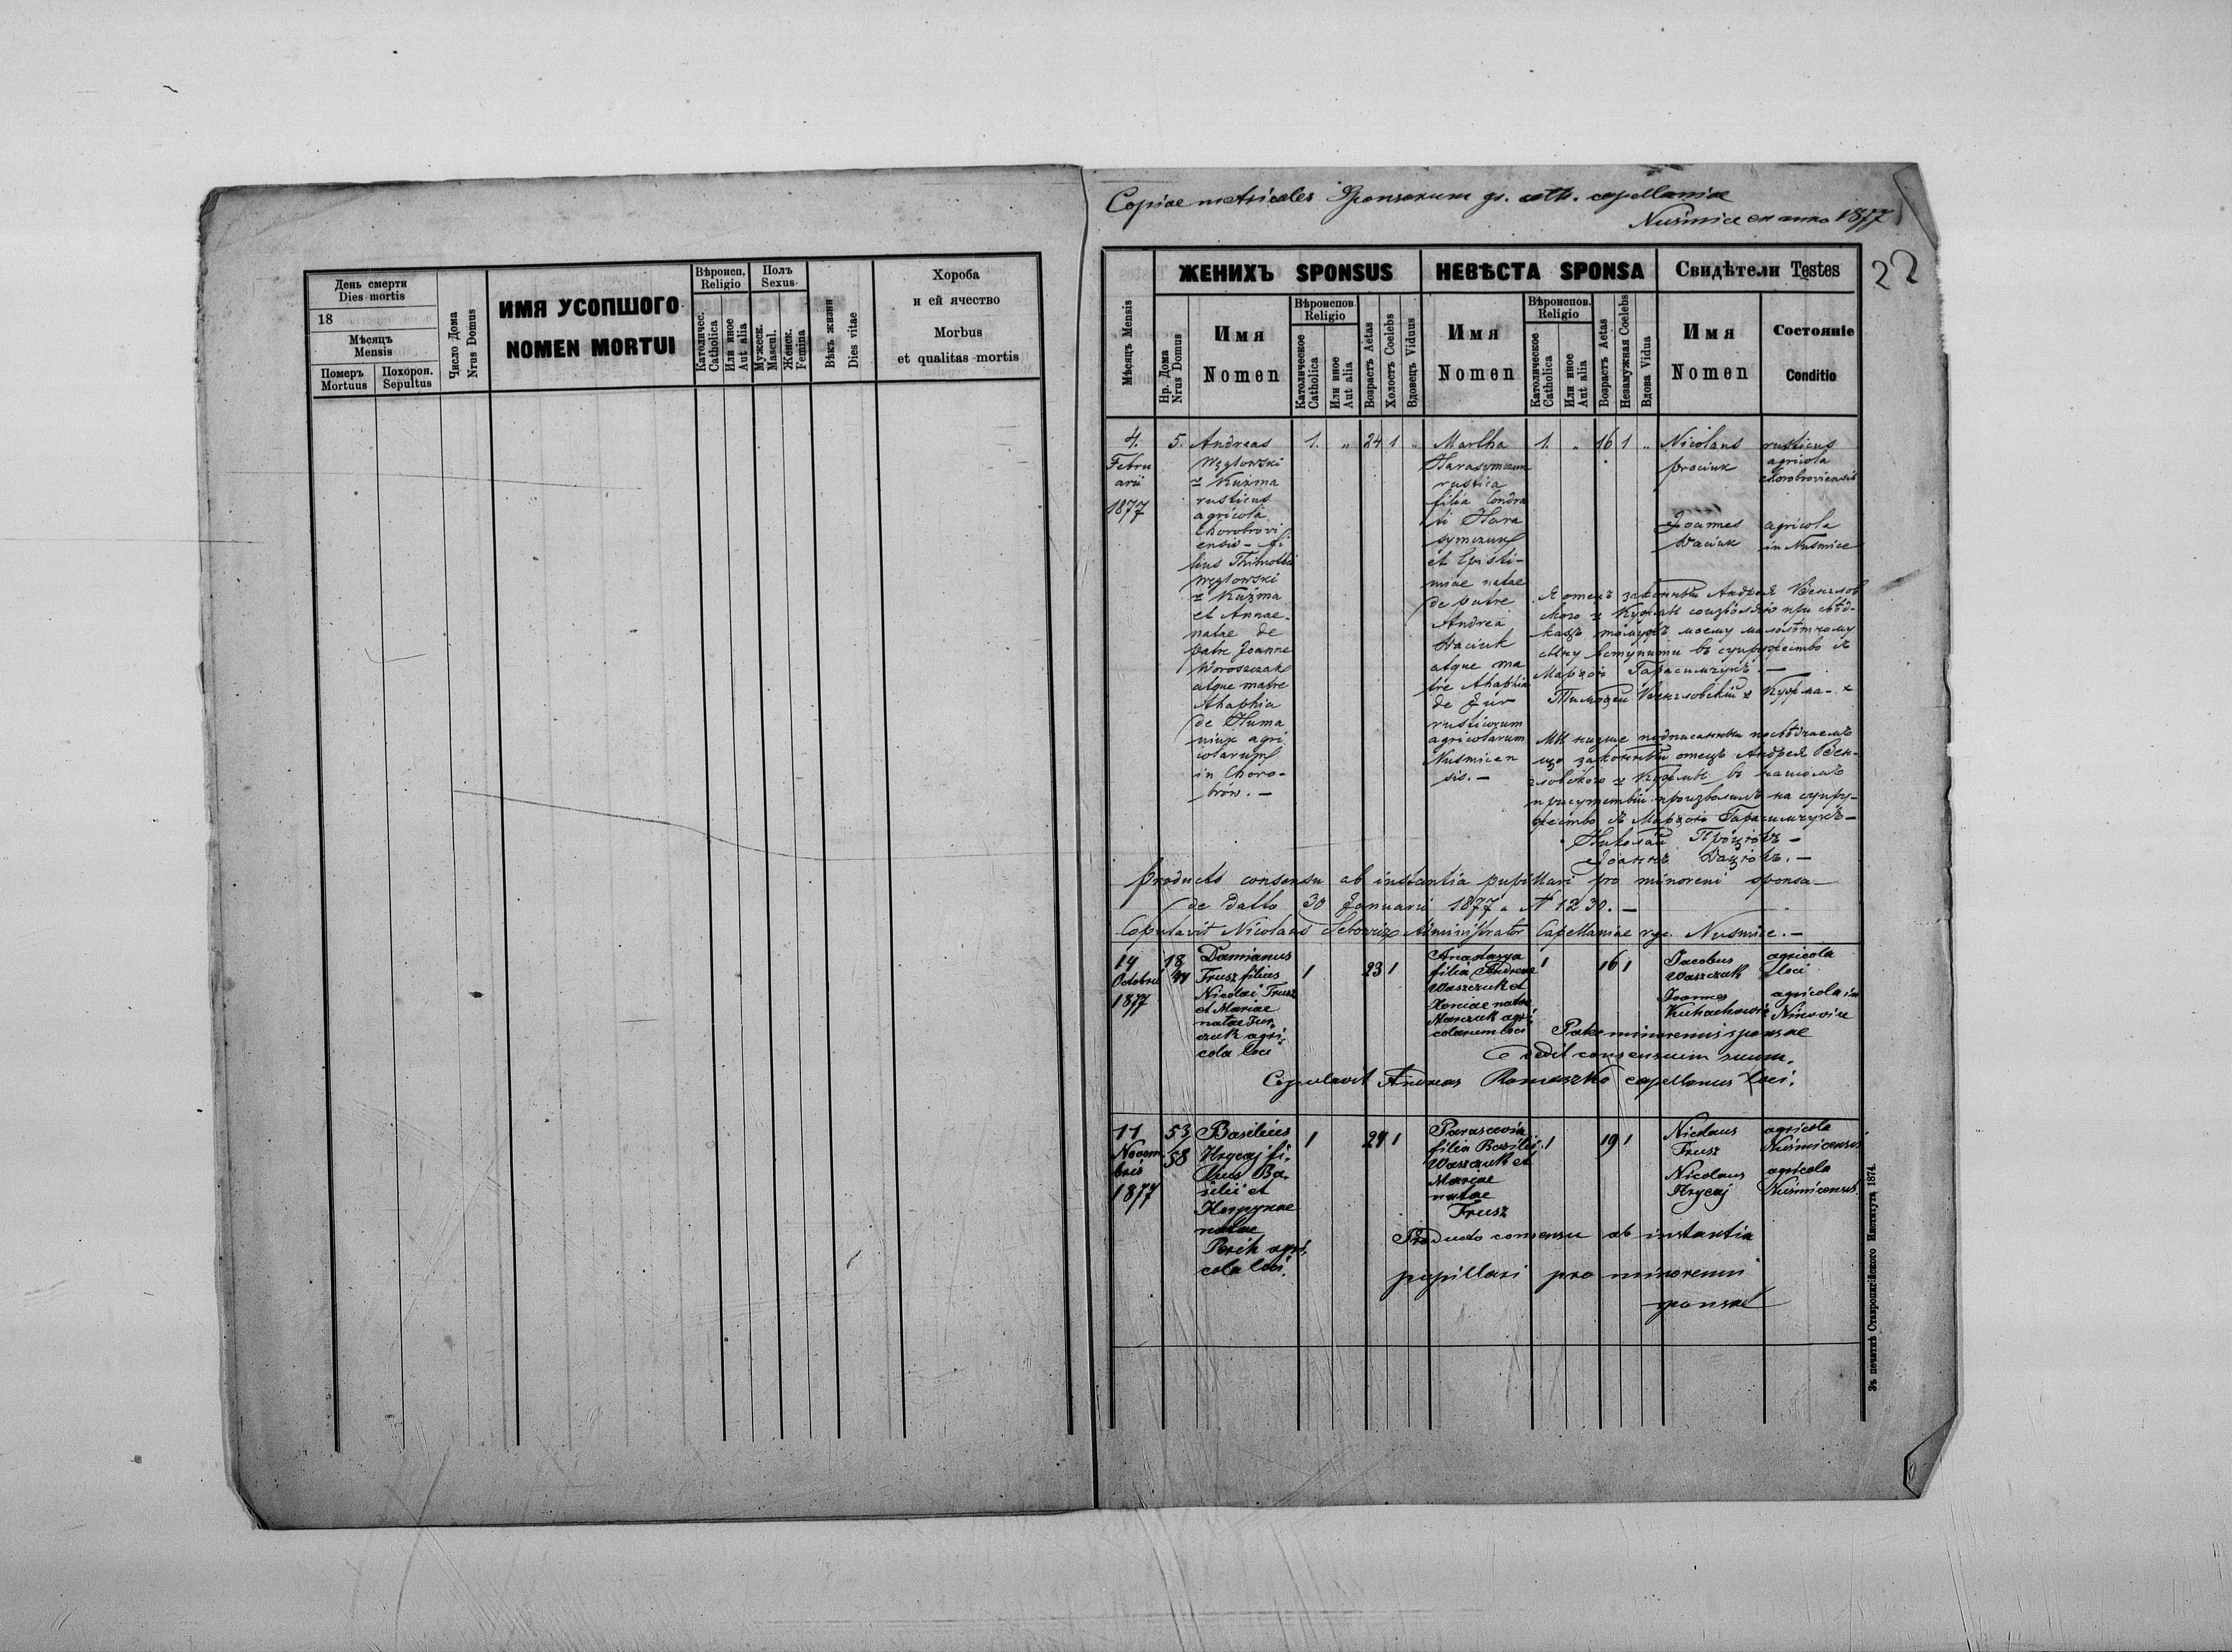 День смерти
Dies mortis
18
Мѣсяцъ
Mensis
Померъ
Mortuus
Похорон.
Sepultus
Число Дома
Nrus Domus
ИМЯ УСОПШОГО
NOMEN MORTUI
Вѣроисп.
Religio
Католичес.
Catholica
Или иное
Aut alia
Полъ
Sexus
Мужеск.
Mascul.
Женск.
Femina
Вѣкъ жизни
Dies vitae
Хороба
и ей ячество
Morbus
et qualitas mortis
Copiae metricales Sponsorum gr. cath. capellaniae
Nuśmice ex anno 1877
22
Мѣсяцъ Mensis
ЖЕНИХЪ SPONSUS
Нр. Дома
Nrus Domus
Имя
Nomen
Вѣроиспов.
Religio
Католическое
Catholica
Или иное
Aut alia
Возрастъ Aetas
Холостъ Coelebs
Вдовецъ Viduus
НЕВѢСТА SPONSA
Имя
Nomen
Вѣроиспов.
Religio
Католическое
Catholica
Или иное
Aut alia
Возрастъ Aetas
Незамужная Coelebs
Вдова Vidua
Свидѣтели Testes
Имя
Nomen
Состояніе
Conditio
4.
Febru
arii
1877
5.
Andreas
Węglowski
Kuzma
rusticus
agricola
Chorobrovi
ensis - fi
lius Thimothei
Węglowski
Kuzma
et Annae
natae de
patre Joanne
Woroszczak
atque matre
Ahaphia
de Huma
niuk agri
colarum
in Choro-
brów. —
1. „ 24 1 „
Martha
Harasymczuk
rustica
filia Condra
ti Hara
symczuk
et Episti-
miae natae
de patre
Andrea
Daciuk
atque ma
tre Ahaphia
de Jur
rusticorum
agricolarum
Nusmicen
sis. —
1. „ 16 1 „
Nicolaus
Prociuk
rusticus
agricola
Chorobroviensis
Joannes
Daciuk
agricola
in Nusmice
Я отецъ законный Андрея Венглов
ского Кузьмы соизволяю при свѣд-
кахъ томужъ моему малолѣтному
сыну вступити въ супружество съ
Марѳою Гарасимчукъ —
Тимоѳей Венгловскій Кузьма
Мы низше подписанные посвѣдчаемъ
що законный отецъ Андрея Вен-
гловского Кузьмы въ нашомъ
присутствіи произволилъ на супру-
жество съ Марѳою Гарасимчукъ —
Николай Процюкъ —
Іоаннъ Дацюкъ. —
Producto consensu ab instantia pupillari pro minoreni sponsa
de datto 30 Januarii 1877 N 1230. —
Copulavit Nicolaus Administrator Capellaniae Nusmice. —
14
Octobris
1877
18
44
Damianus
Trusz filius
Nicolai Trusz
et Mariae
natae Jur
czuk agri-
cola loci
1 23 1
Anastasya
filia Andreae
Waszczuk et
Xeniae natae
Marczuk agri
colarum loci
1 16 1
Jacobus
Waszczuk
agricola
loci
Joannes
agricola in
Pater minorenis sponsae
dedit consensum suum.
Copulavit Andreas Romaszko capellanus loci.
11
Novem
bris
1877
53
58
Basilius
Hrycaj fi-
lius Ba-
silii et
natae
agri-
cola loci.
1 24 1
Parascevia
filia Basilii
Waszczuk et
Mariae
natae
Trusz
1 19 1
Nicolaus
Trusz
agricola
Nuśmicensis
Nicolaus
Hrycaj
agricola
Nuśmicensis
Producto consensu ab instantia
pupillari pro minorenni
sponsae
Зъ печатнѣ Ставропигійского Института 1874.